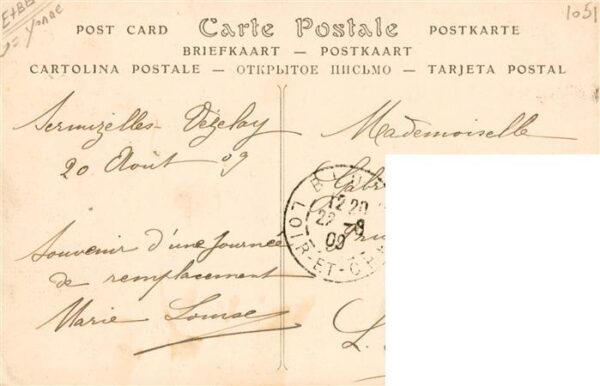 E+BB
Yonne
1051
Carte Postale
POST CARD
POSTKARTE
BRIEFKAART — POSTKAART
CARTOLINA POSTALE — ОТКРЫТОЕ ПИСЬМО — TARJETA POSTAL
Sermizelles-Vézelay
20 Août 09
Souvenir d'une journée
de remplacement
Marie Louise
Mademoiselle
Gabr
12 20
22 - 8
09
LOIR-ET-C
L.